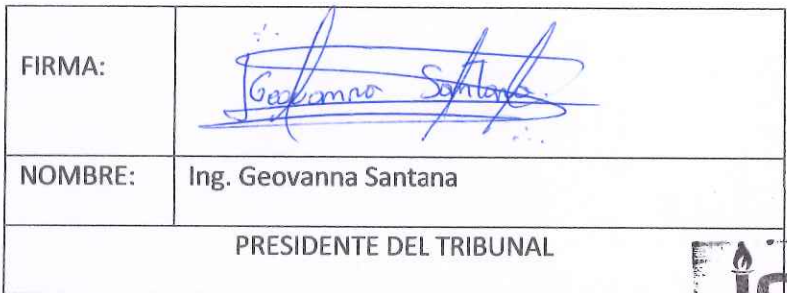 FIRMA:
Geovanna Santana
NOMBRE: Ing. Geovanna Santana
PRESIDENTE DEL TRIBUNAL